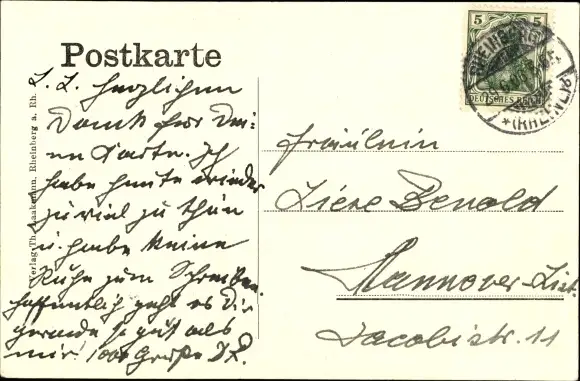 Postkarte
L. L. herzlichen
Dank für Dei-
ne Karte. Ich
habe heute wieder
zu viel zu thun
u. habe keine
Ruhe zum Schreiben.
Hoffentlich geht es Dir
gerade so gut als
mir! 1000 Grüße
Verlag Th. Laakmann, Rheinberg a. Rh.
5 5
DEUTSCHES REICH
RHEINBERG
(RHEINL.)
Fräulein
Liese Benold
Hannover-List.
Jacobistr. 11